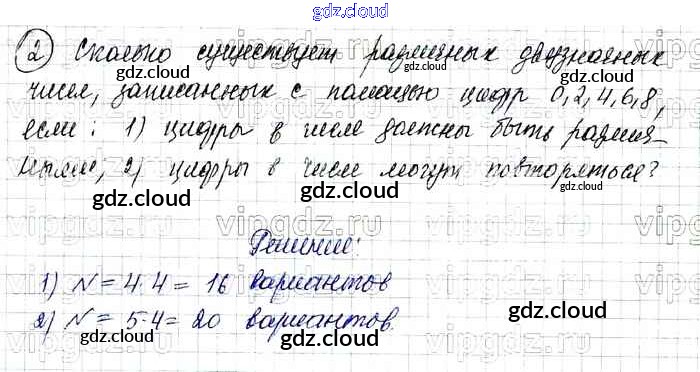 gdz.cloud
2 Сколько существует различных двузначных
чисел, записанных с помощью цифр 0, 2, 4, 6, 8,
если: 1) цифры в числе должны быть различ-
ными; 2) цифры в числе могут повторяться?
Решение:
1) N = 4·4 = 16 вариантов
2) N = 5·4 = 20 вариантов.
gdz.cloud
gdz.cloud
gdz.cloud
gdz.cloud
gdz.cloud
gdz.cloud
gdz.cloud
gdz.cloud
gdz.cloud
gdz.cloud
vipgdz.ru
vipgdz.ru
vipgdz.ru